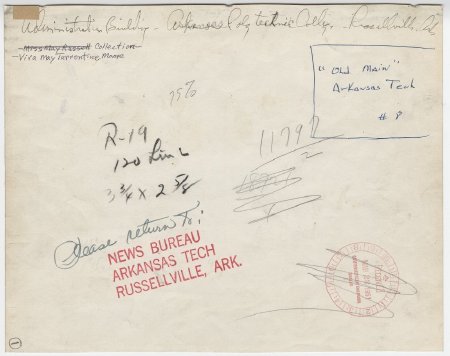 Administration Building - Arkansas Polytechnic College, Russellville, Ark
Miss May Russell Collection
Viva May Torrentine Moore
"Old Main"
Arkansas Tech
# 8
R-19
120 Line
3 3/4 x 2 5/8
11797
Please return to:
NEWS BUREAU
ARKANSAS TECH
RUSSELLVILLE, ARK.
1